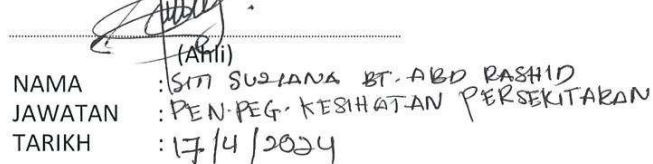 (Ahli)
NAMA : SITI SUZIANA BT. ABD RASHID
JAWATAN : PEN. PEG. KESIHATAN PERSEKITARAN
TARIKH : 17/4/2024